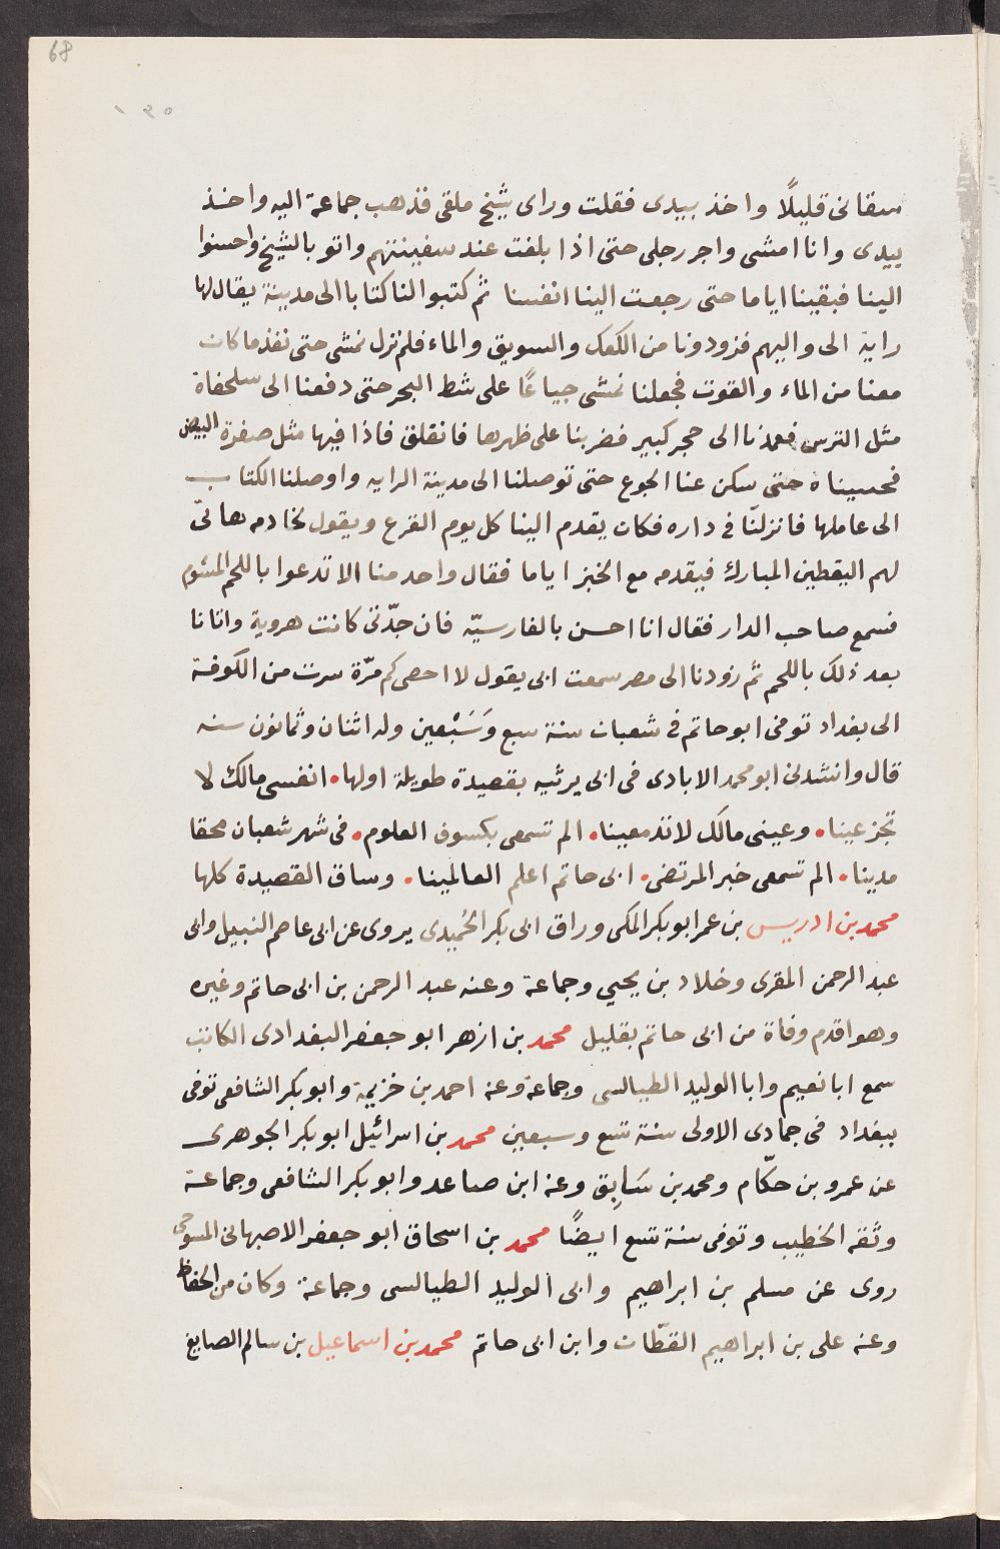 68
١٣٥
سقانى قليلًا واخذ بيدى فقلت وراى شيخ ملقى فذهب جماعة اليه واخذ
بيدى وانا امشى واجر رجلى حتى اذا بلغت عند سفينتهم واتو بالشيخ واحسنوا
الينا فبقينا اياما حتى رجعت الينا انفسنا ثم كتبوا لنا كتابا الى مدينة يقال لها
راية الى واليهم فزودونا من الكعك والسويق والماء فلم نزل نمشى حتى نفذ ما كان
معنا من الماء والقوت فجعلنا نمشى جياعًا على شط البحر حتى دفعنا الى سلحفاة
مثل الترس فعمدنا الى حجر كبير فضربنا على ظهرها فانفلق فاذا فيها مثل صفرة البيض
فحسيناه حتى سكن عنا الجوع حتى توصلنا الى مدينة الرايه واوصلنا الكتاب
الى عاملها فانزلنّا فى داره فكان يقدم الينا كل يوم القرع ويقول لخادمه هاتىّ
لهم اليقطين المبارك فيقدمه مع الخبز اياما فقال واحد منا الا تدعوا باللحم المشوم
فسمع صاحب الدار فقال انا احسن بالفارسيّه فان جدّتى كانت هروية واتانا
بعد ذلك باللحم ثم زودنا الى مصر سمعت ابى يقول لا احصى كم مرّة سرت من الكوفة
الى بغداد توفى ابو حاتم فى شعبان سنة سبع وَسَبْعين وله اثنان وثمانون سنه
قال وانشدنى ابو محمد الابادى فى ابى يرثيه بقصيدة طويلة اولها • انفسى مالك لا
تجزعينا • وعينى مالك لا تدمعينا • الم تسمعى بكسوف العلوم • فى شهر شعبان محقا
مدينا • الم تسمعى خبر المرتضى • ابى حاتم اعلم العالمينا • وساق القصيدة كلها
محمد بن ادريس بن عمر ابو بكر المكى وراق ابى بكر الحُميدى يروى عن ابى عاصم النبيل وابى
عبد الرحمن المقرى وخلاد بن يحيى وجماعة وعنه عبد الرحمن بن ابى حاتم وغيره
وهو اقدم وفاة من ابى حاتم بقليل محمد بن ازهر ابو جعفر البغدادى الكاتب
سمع ابا نعيم وابا الوليد الطيالسى وجماعة وعنه احمد بن خزيمة وابو بكر الشافعى توفى
ببغداد فى جمادى الاولى سنة تسع وسبعين محمد بن اسرائيل ابو بكر الجوهرى
عن عمرو بن حكّام ومحمد بن سَابِق وعنه ابن صاعد وابو بكر الشافعى وجماعة
وثقه الخطيب وتوفى سنة تسع ايضًا محمد بن اسحاق ابو جعفر الاصبهانى المسوحى
روى عن مسلم بن ابراهيم وابى الوليد الطيالسى وجماعة وكان من الحفاظ
وعنه على بن ابراهيم القطّان وابن ابى حاتم محمد بن اسماعيل بن سالم الصايغ